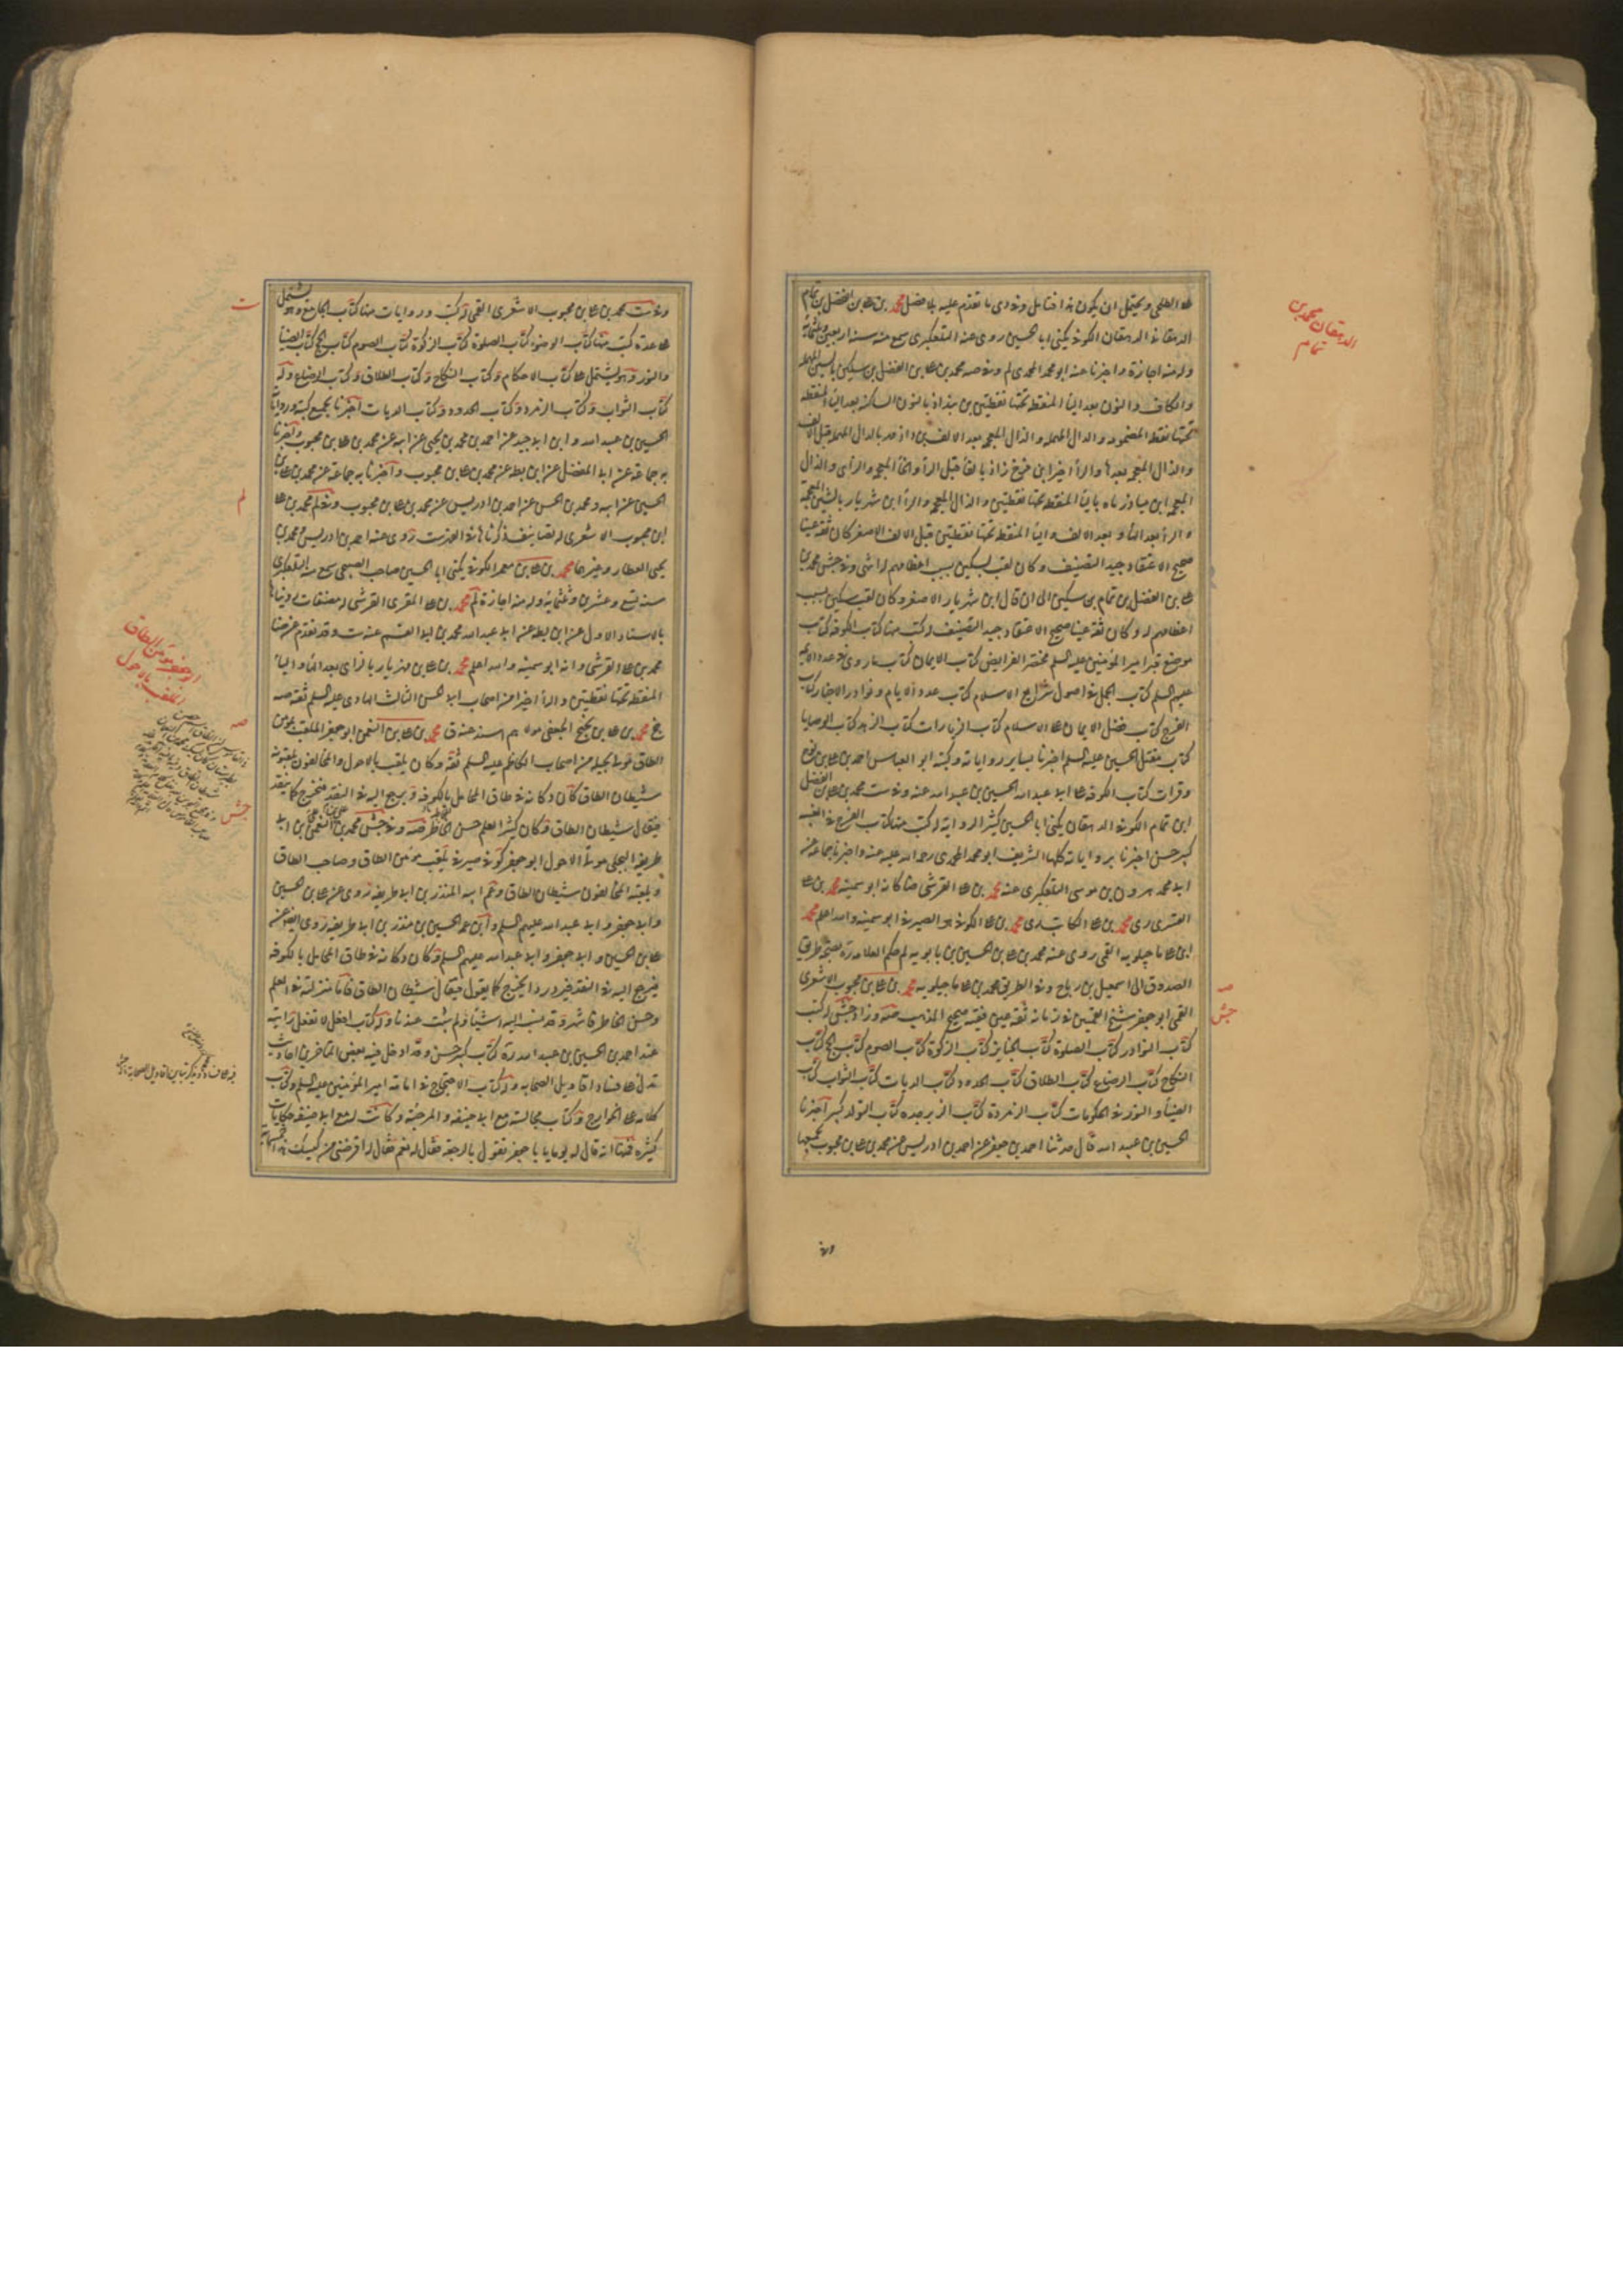 الدهقان محمد بن
تمام
علی الطلحی ویحتمل ان یکون هذا فتامل وفی دی ما تقدم علیه بلا فصل محمد بن علی بن الفضل بن تمام
الدهقانی الدهقان الکوفی یکنی ابا الحسین روی عنه التلعکبری سمع منه سنة اربعین وثلثمائة
وله منه اجازة واخبرنا عنه ابو محمد المحمدی لم وفی صه محمد بن علی بن الفضل بن سکین بالسین المهملة
والکاف والنون بعد الیا المنقطة تحتها نقطتین بن بنداذ بالنون الساکنة بعد الیا المنقطة
تحتها نقطة المضمومة والدال المهملة والذال المعجمة بعد الالف بن داذمه بالدال المهملة قبل الالف
والذال المعجمة بعدها والرا اخیرا بن فرخ زاذ بالفا قبل الرا والخا المعجمة والزای والذال
المعجمة ابن میاذرماه بالیا المنقطة تحتها نقطتین والذال المعجمة والرا ابن شهریار بالشین المعجمة
والرا بعد الها وبعد الالف والیا المنقطة تحتها نقطتین قبل الالف الاصغر کان ثقة عینا
صحیح الاعتقاد جید التصنیف وکان لقب بسکین بسبب اعظامهم له اشی وفی جش محمد بن
علی بن الفضل بن تمام بن سکین الی ان قال ابن شهریار الاصغر وکان لقب سکین بسبب
اعظامهم له وکان ثقة عینا صحیح الاعتقاد جید التصنیف له کتب منها کتاب الکوفة کتاب
موضع قبر امیر المؤمنین علیه السلم مختصر الفرایض کتاب الایمان کتاب ما روی فی عدد الائمة
علیهم السلم کتاب الجمل فی اصول شرایع الاسلام کتاب عدد الایام ونوادر الاخبار کتاب
الفرج کتاب فضل الایمان علی الاسلام کتاب الزیارات کتاب الزهد کتاب الوصایا
کتاب مقتل الحسین علیه السلم اخبرنا بسایر روایاته وکتبه ابو العباس احمد بن علی بن نوح
وقرات کتاب الکوفة علی ابی عبد الله الحسین بن عبید الله عنه وفی ست محمد بن علی بن الفضل
ابن تمام الکوفی الدهقان یکنی ابا الحسین کثیر الروایة له کتب منها کتاب الفرج فی الغیبة
کبیر حسن اخبرنا بروایاته کلها الشریف ابو محمد المحمدی رحمه الله علیه عنه واخبرنا جماعة عنه
ابی محمد هرون بن موسی التلعکبری عنه محمد بن علی القرشی ضا کانه ابو سمینة محمد بن علی
القشیری ری محمد بن علی الکاتب دی محمد بن علی الکوفی هو الصیرفی ابو سمینة والله اعلم محمد
ابن علی ماجیلویه القمی روی عنه محمد بن علی بن الحسین بن بابویه لم حکم العلامة رة بصحة طریق
الصدوق الی اسمعیل بن رباح وفی الطریق محمد بن علی ماجیلویه محمد بن علی بن محبوب الاشعری
صه
القمی ابو جعفر شیخ القمیین فی زمانه ثقة عین فقیه صحیح المذهب صه وزاد جش له کتب
جش
کتاب النوادر کتاب الصلوة کتاب الجنایز کتاب الزکوة کتاب الصوم کتاب الحج کتاب
النکاح کتاب الرضاع کتاب الطلاق کتاب الحدود کتاب الدیات کتاب الثواب کتاب
الضیا والنور فی الحکومات کتاب الزمردة کتاب الزبرجدة کتاب التولد کبیر اخبرنا
الحسین بن عبید الله قال حدثنا احمد بن جعفر عن احمد بن ادریس عن محمد بن علی بن محبوب بجمیعها
وفی
وفی ست محمد بن علی بن محبوب الاشعری القمی له کتب وروایات منها کتاب الجامع وهو یشتمل
ت
علی عدة کتب منها کتاب الوضوء کتاب الصلوة کتاب الزکوة کتاب الصوم کتاب الحج کتاب الضیا
والنور وهو یشتمل علی کتاب الاحکام وکتاب النکاح وکتاب الطلاق وکتاب الرضاع وله
کتاب الثواب وکتاب الزمرد وکتاب الحدود وکتاب الدیات اخبرنا بجمیع کتبه وروایاته
الحسین بن عبید الله وابن ابی جید عن احمد بن محمد بن یحیی عن ابیه عن محمد بن علی بن محبوب واخبرنا
به جماعة عن ابی المفضل عن ابن بطة عن محمد بن علی بن محبوب واخبرنا به جماعة عن محمد بن علی بن
الحسین عن ابیه ومحمد بن الحسن عن احمد بن ادریس عن محمد بن علی بن محبوب وفی لم محمد بن علی
لم
ابن محبوب الاشعری له تصانیف ذکرناها فی الفهرست روی عنه احمد بن ادریس ومحمد بن
یحیی العطار وغیرهما محمد بن علی بن معمر الکوفی یکنی ابا الحسین صاحب الصبیحی سمع منه التلعکبری
سنة تسع وعشرین وثلثمایة وله منه اجازة لم محمد بن علی المقری القرشی له مصنفات رویناها
بالاسناد الاول عن ابن بطة عن ابی عبد الله محمد بن ابی القسم عنه ست وقد تقدم عن ضا
محمد بن علی القرشی وانه ابو سمینة والله اعلم محمد بن علی بن مهزیار بالزای بعد الها والیا
المنقطة تحتها نقطتین والرا اخیرا من اصحاب ابی الحسن الثالث الهادی علیه السلم ثقة صه
جخ محمد بن علی بن نجیح الجعفی مولاهم اسند عنه ق محمد بن علی بن النعمن ابو جعفر الملقب بمؤمن
صه
الطاق مولی بجیلة من اصحاب الکاظم علیه السلم ثقة وکان یلقب بالاحول والمخالفون یلقبونه
شیطان الطاق کان دکانه فی طاق المحامل بالکوفة ویرجع الیه فی النقد فیخرج کما ینقد
فیقال شیطان الطاق وکان کثیر العلم حسن الخاطر صه وفی جش محمد بن علی بن النعمن بن ابی
جش
طریفة البجلی مولی الاحول ابو جعفر کوفی صیرفی یلقب مؤمن الطاق وصاحب الطاق
ویلقبه المخالفون شیطان الطاق وعم ابیه المنذر بن ابی طریفة روی عن علی بن الحسین
وابی جعفر وابی عبد الله علیهم السلم وابن عمه الحسین بن منذر بن ابی طریفة روی ایضا عن
علی بن الحسین وابی جعفر وابی عبد الله علیهم السلم وکان دکانه فی طاق المحامل بالکوفة
فیرجع الیه فی النقد فیرد ردا یخرج کما یقول فیقال شیطان الطاق فاما منزلته فی العلم
وحسن الخاطر فاشهر وقد نسب الیه اشیا ولم تثبت عندنا وله کتاب افعل لا تفعل رایته
عند احمد بن الحسین بن عبید الله رة کتاب کبیر حسن وقد ادخل فیه بعض المتاخرین احادیث
تدل علی فساد اقاویل الصحابة وله کتاب الاحتجاج فی امامة امیر المؤمنین علیه السلم وکتاب
کلامه علی الخوارج وکتاب مجالسه مع ابی حنیفة والمرجئة وکانت له مع ابی حنیفة حکایات
کثیرة فمنها انه قال له یوما یا با جعفر تقول بالرجعة فقال له نعم فقال له اقرضنی من کیسک هذا خمسمایة
ابو جعفر مؤمن الطاق
الملقب بالاحول